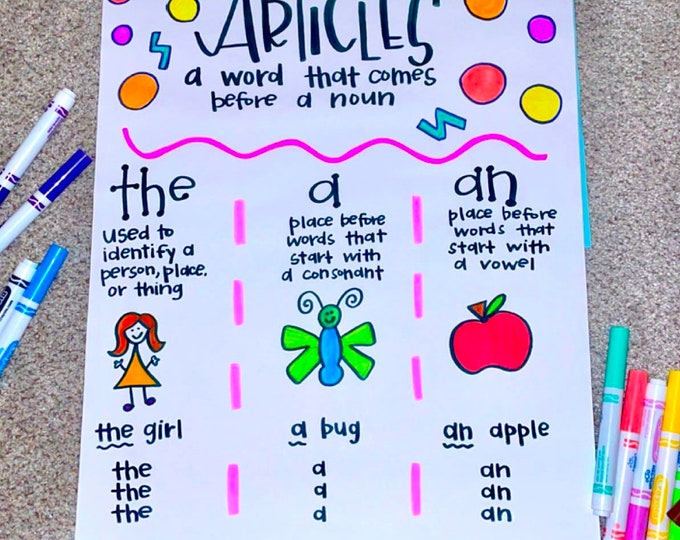 ARTICLES
a word that comes
before a noun
the
used to
identify a
person, place,
or thing
a
place before
words that
start with
a consonant
an
place before
words that
start with
a vowel
the girl
a bug
an apple
the
the
the
a
a
a
an
an
an